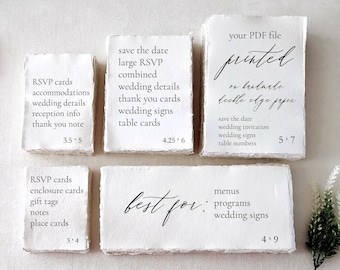 RSVP cards
accommodations
wedding details
reception info
thank you note
3.5 * 5
save the date
large RSVP
combined
wedding details
thank you cards
wedding signs
table cards
4.25 * 6
your PDF file
printed
on handmade
deckle edge paper
save the date
wedding invitation
wedding signs
table numbers
5 * 7
RSVP cards
enclosure cards
gift tags
notes
place cards
3 * 4
best for:
menus
programs
wedding signs
4 * 9